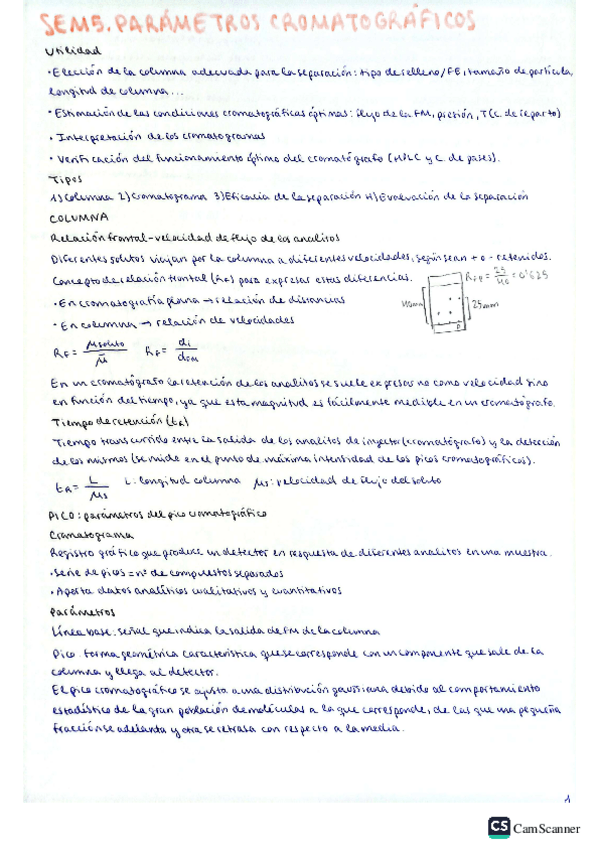 SEM5. PARÁMETROS CROMATOGRÁFICOS
Utilidad
• Elección de la columna adecuada para la separación: tipo de relleno/FE, tamaño de partícula,
longitud de columna...
• Estimación de las condiciones cromatográficas óptimas: flujo de la FM, presión, T (C. de reparto)
• Interpretación de los cromatogramas
• Verificación del funcionamiento óptimo del cromatógrafo (HPLC y C. de gases).
Tipos
1) Columna 2) Cromatograma 3) Eficacia de la separación 4) Evaluación de la separación
COLUMNA
Relación frontal - velocidad de flujo de los analitos
Diferentes solutos viajan por la columna a diferentes velocidades, según sean + o - retenidos.
Concepto de relación frontal (RF) para expresar estas diferencias.
= 25/40 = 0'625
40mm
25mm
• En cromatografía plana → relación de distancias
• En columna → relación de velocidades
RF = μsoluto/μ̄ RF = di/dFM
En un cromatógrafo la retención de los analitos se suele expresar no como velocidad sino
en función del tiempo, ya que esta magnitud es fácilmente medible en un cromatógrafo.
Tiempo de retención (tR)
Tiempo transcurrido entre la salida de los analitos de inyector (cromatógrafo) y la detección
de los mismos (se mide en el punto de máxima intensidad de los picos cromatográficos).
tR = L/μs L: longitud columna μs: velocidad de flujo del soluto
PICO: parámetros del pico cromatográfico
Cromatograma
Registro gráfico que produce un detector en respuesta de diferentes analitos en una muestra.
• Serie de picos = nº de compuestos separados
• Aporta datos analíticos cualitativos y cuantitativos
Parámetros
Línea base: señal que indica la salida de FM de la columna
Pico: forma geométrica característica que se corresponde con un componente que sale de la
columna y llega al detector.
El pico cromatográfico se ajusta a una distribución gaussiana debido al comportamiento
estadístico de la gran población de moléculas a la que corresponde, de las que una pequeña
fracción se adelanta y otra se retrasa con respecto a la media.
1
CS CamScanner